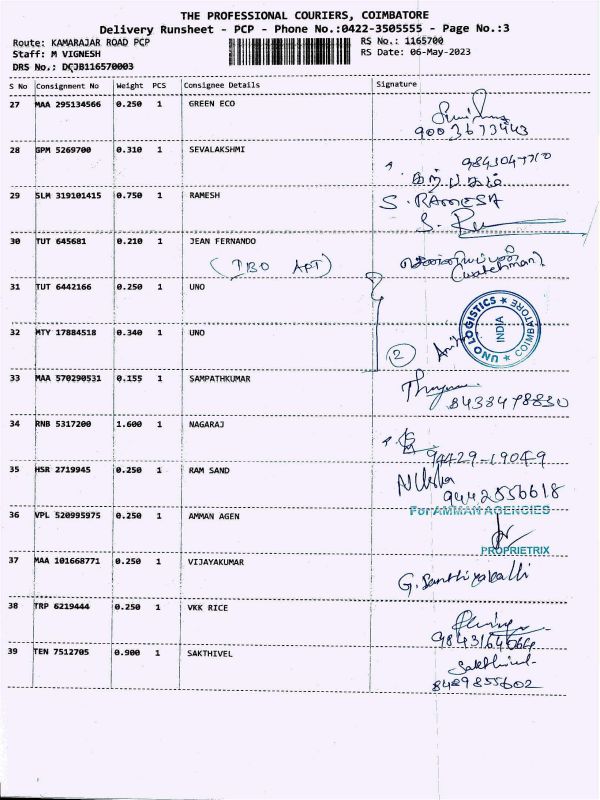 THE PROFESSIONAL COURIERS, COIMBATORE
Delivery Runsheet - PCP - Phone No.:0422-3505555 - Page No.:3
Route: KAMARAJAR ROAD PCP RS No.: 1165700
Staff: M VIGNESH RS Date: 06-May-2023
DRS No.: DCJB116570003
S No Consignment No Weight PCS Consignee Details Signature
27 MAA 295134566 0.250 1 GREEN ECO
9003673443
28 GPM 5269700 0.310 1 SEVALAKSHMI
கற்பகம்
29 SLM 319101415 0.750 1 RAMESH S. RAMESA
30 TUT 645681 0.210 1 JEAN FERNANDO
(TBO APT) (watchman)
31 TUT 6442166 0.250 1 UNO
UNO LOGISTICS ★ COIMBATORE ★
INDIA
32 MTY 17884518 0.340 1 UNO 2
33 MAA 570290531 0.155 1 SAMPATHKUMAR
8438478830
34 RNB 5317200 1.600 1 NAGARAJ
94429-19049
35 HSR 2719945 0.250 1 RAM SAND
9442556618
For AMMAN AGENCIES
36 VPL 520995975 0.250 1 AMMAN AGEN
PROPRIETRIX
37 MAA 101668771 0.250 1 VIJAYAKUMAR
38 TRP 6219444 0.250 1 VKK RICE
39 TEN 7512705 0.900 1 SAKTHIVEL Sakthivel
8489855602